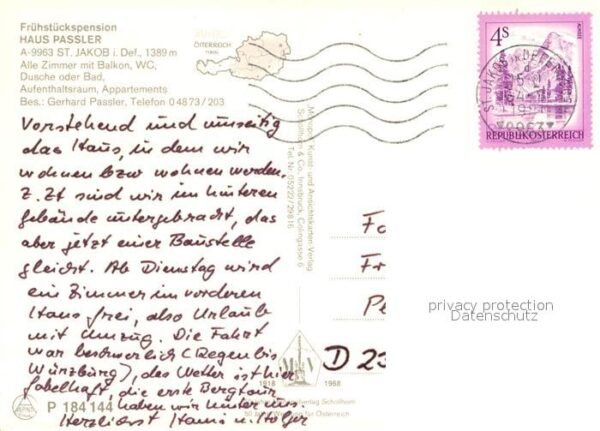 Frühstückspension
HAUS PASSLER
A-9963 ST. JAKOB i. Def., 1389 m
Alle Zimmer mit Balkon, WC,
Dusche oder Bad,
Aufenthaltsraum, Appartements
Bes.: Gerhard Passler, Telefon 0 48 73 / 203
ÖSTERREICH
4S
REPUBLIK ÖSTERREICH
ST. JAKOB IN DEFEREGGEN
Vorstehend und umseitig
das Haus, in dem wir
wohnen bzw wohnen werden.
Z. Zt sind wir im hinteren
Gebäude untergebracht, das
aber jetzt einer Baustelle
gleicht. Ab Dienstag wird
ein Zimmer im vorderen
Haus frei, also Urlaub
mit Umzug. Die Fahrt
war beschwerlich (Regen bis
Würzburg), das Wetter ist hier
fabelhaft, die erste Bergtour
haben wir hinter uns.
Herzlichst Hanni u. Holger
Kunst- und Ansichtskarten-Verlag
Schöllhorn & Co., Innsbruck, Colingasse 6
Tel. Nr. 05222/29816
Fa
Fr
Pe
D 23
privacy protection
Datenschutz
1918
1968
P 184 144
verlag Schöllhorn
50 für Österreich